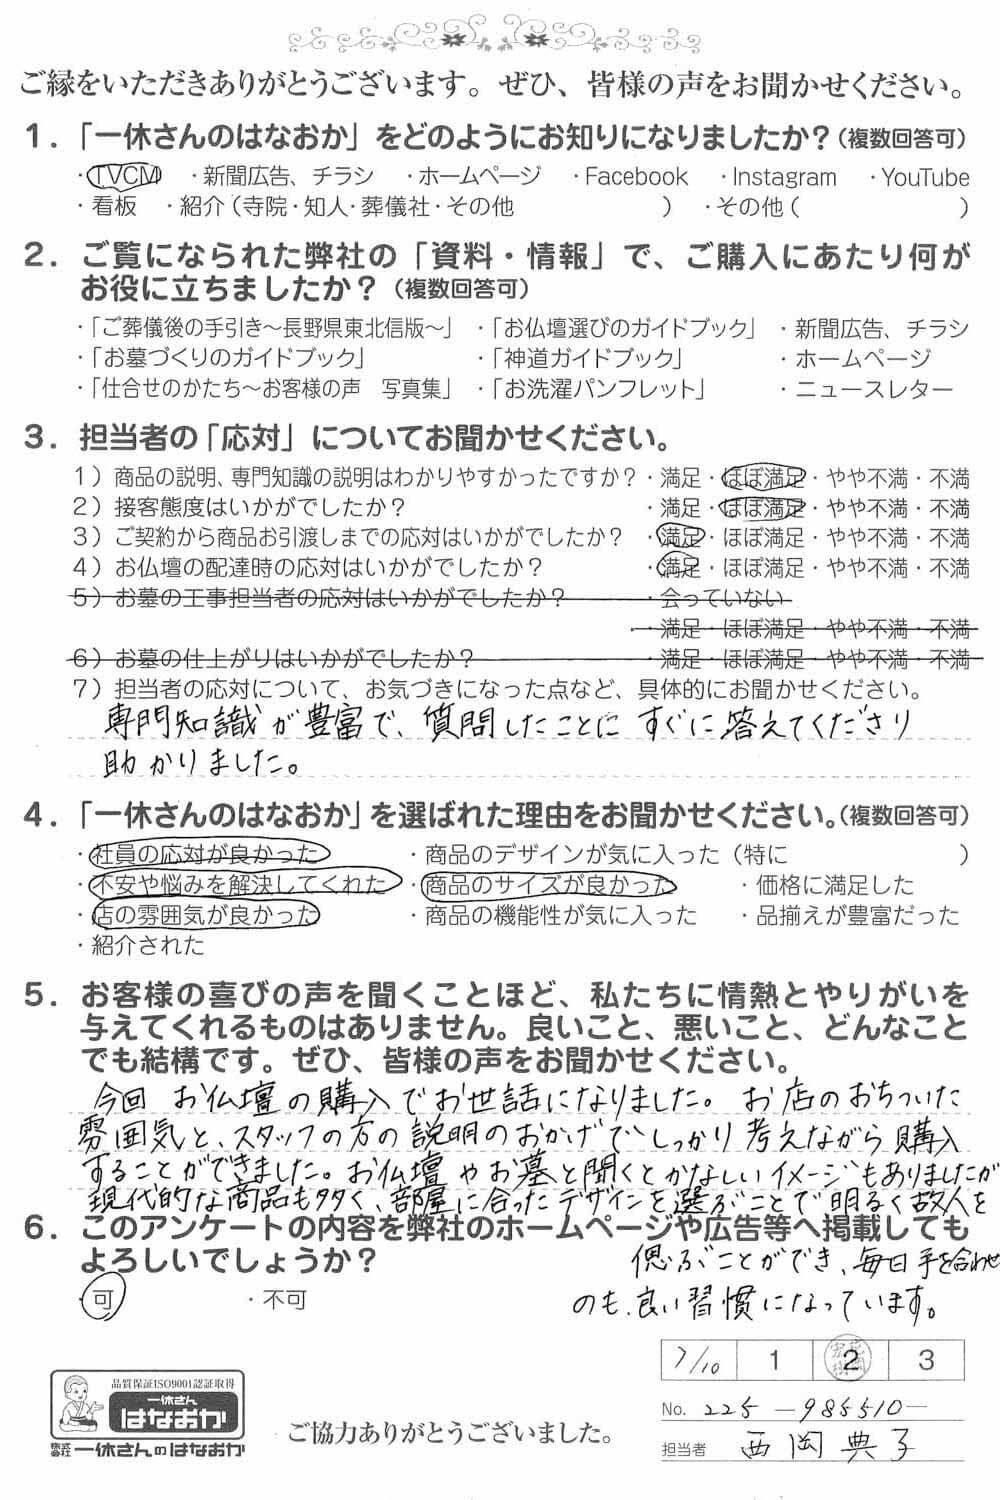 ご縁をいただきありがとうございます。ぜひ、皆様の声をお聞かせください。
1．「一休さんのはなおか」をどのようにお知りになりましたか？（複数回答可）
・TVCM ・新聞広告、チラシ ・ホームページ ・Facebook ・Instagram ・YouTube
・看板 ・紹介（寺院・知人・葬儀社・その他　　　） ・その他（　　　　）
2．ご覧になられた弊社の「資料・情報」で、ご購入にあたり何が
お役に立ちましたか？（複数回答可）
・「ご葬儀後の手引き～長野県東北信版～」 ・「お仏壇選びのガイドブック」 ・新聞広告、チラシ
・「お墓づくりのガイドブック」 ・「神道ガイドブック」 ・ホームページ
・「仕合せのかたち～お客様の声　写真集」 ・「お洗濯パンフレット」 ・ニュースレター
3．担当者の「応対」についてお聞かせください。
1）商品の説明、専門知識の説明はわかりやすかったですか？・満足・ほぼ満足・やや不満・不満
2）接客態度はいかがでしたか？ ・満足・ほぼ満足・やや不満・不満
3）ご契約から商品お引渡しまでの応対はいかがでしたか？ ・満足・ほぼ満足・やや不満・不満
4）お仏壇の配達時の応対はいかがでしたか？ ・満足・ほぼ満足・やや不満・不満
5）お墓の工事担当者の応対はいかがでしたか？ ・会っていない
・満足・ほぼ満足・やや不満・不満
6）お墓の仕上がりはいかがでしたか？ ・満足・ほぼ満足・やや不満・不満
7）担当者の応対について、お気づきになった点など、具体的にお聞かせください。
専門知識が豊富で、質問したことにすぐに答えてくださり
助かりました。
4．「一休さんのはなおか」を選ばれた理由をお聞かせください。（複数回答可）
・社員の応対が良かった ・商品のデザインが気に入った（特に　　　　）
・不安や悩みを解決してくれた ・商品のサイズが良かった ・価格に満足した
・店の雰囲気が良かった ・商品の機能性が気に入った ・品揃えが豊富だった
・紹介された
5．お客様の喜びの声を聞くことほど、私たちに情熱とやりがいを
与えてくれるものはありません。良いこと、悪いこと、どんなこと
でも結構です。ぜひ、皆様の声をお聞かせください。
今回 お仏壇の購入でお世話になりました。お店のおちついた
雰囲気と、スタッフの方の説明のおかげでしっかり考えながら購入
することができました。お仏壇やお墓と聞くとかなしいイメージもありましたが
現代的な商品も多く、部屋に合ったデザインを選ぶことで明るく故人を
6．このアンケートの内容を弊社のホームページや広告等へ掲載しても
よろしいでしょうか？
偲ぶことができ、毎日手を合わせ
・可 ・不可
のも、良い習慣になっています。
7/10 1 2 3
品質保証ISO9001認証取得
一休さん
はなおか
株式会社 一休さんのはなおか
ご協力ありがとうございました。
No. 225-985510-
担当者 西岡典子